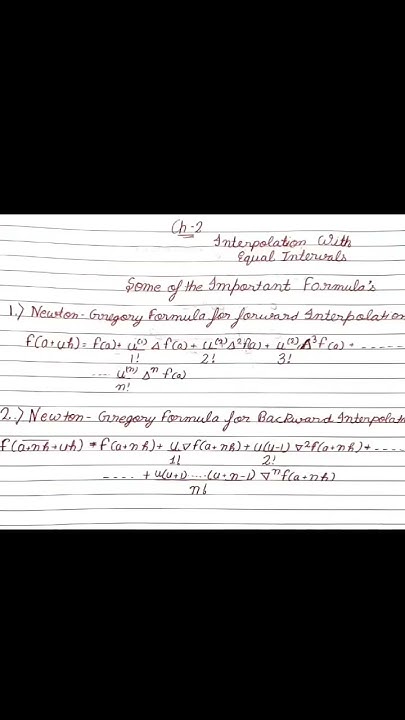 Ch-2
Interpolation With
Equal Intervals
Some of the Important Formula's
1.) Newton-Gregory Formula for forward Interpolation
f(a+uh) = f(a) + u⁽¹⁾/1! Δf(a) + u⁽²⁾/2! Δ²f(a) + u⁽³⁾/3! Δ³f(a) + ------
--- u⁽ⁿ⁾/n! Δⁿ f(a)
2.) Newton-Gregory Formula for Backward Interpolat
f(a+nh+uh) = f(a+nh) + u/1! ∇f(a+nh) + u(u-1)/2! ∇²f(a+nh) + ----
---- + u(u+1).....(u+n-1)/n! ∇ⁿf(a+nh)